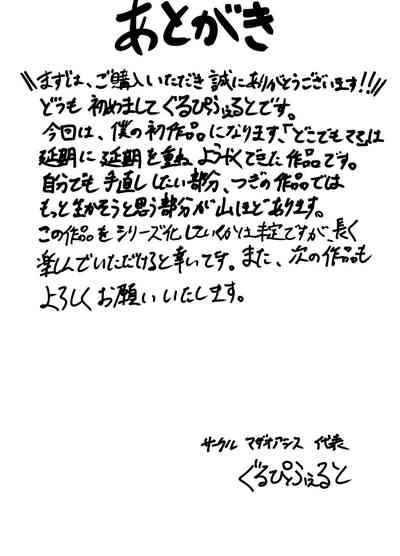 あとがき
まずは、ご購入いただき誠にありがとうございます!!
どうも初めましてぐるぴふぇるとです。
今回は、僕の初作品になります、「どこでもママ」は
延期に延期を重ね、ようやくできた作品です。
自分でも手直ししたい部分、つぎの作品では
もっと生かそうと思う部分が山ほどあります。
この作品をシリーズ化していくかは未定ですが、長く
楽しんでいただけると幸いです。また、次の作品も
よろしくお願いいたします。
サークル マダオアシス 代表
ぐるぴふぇると